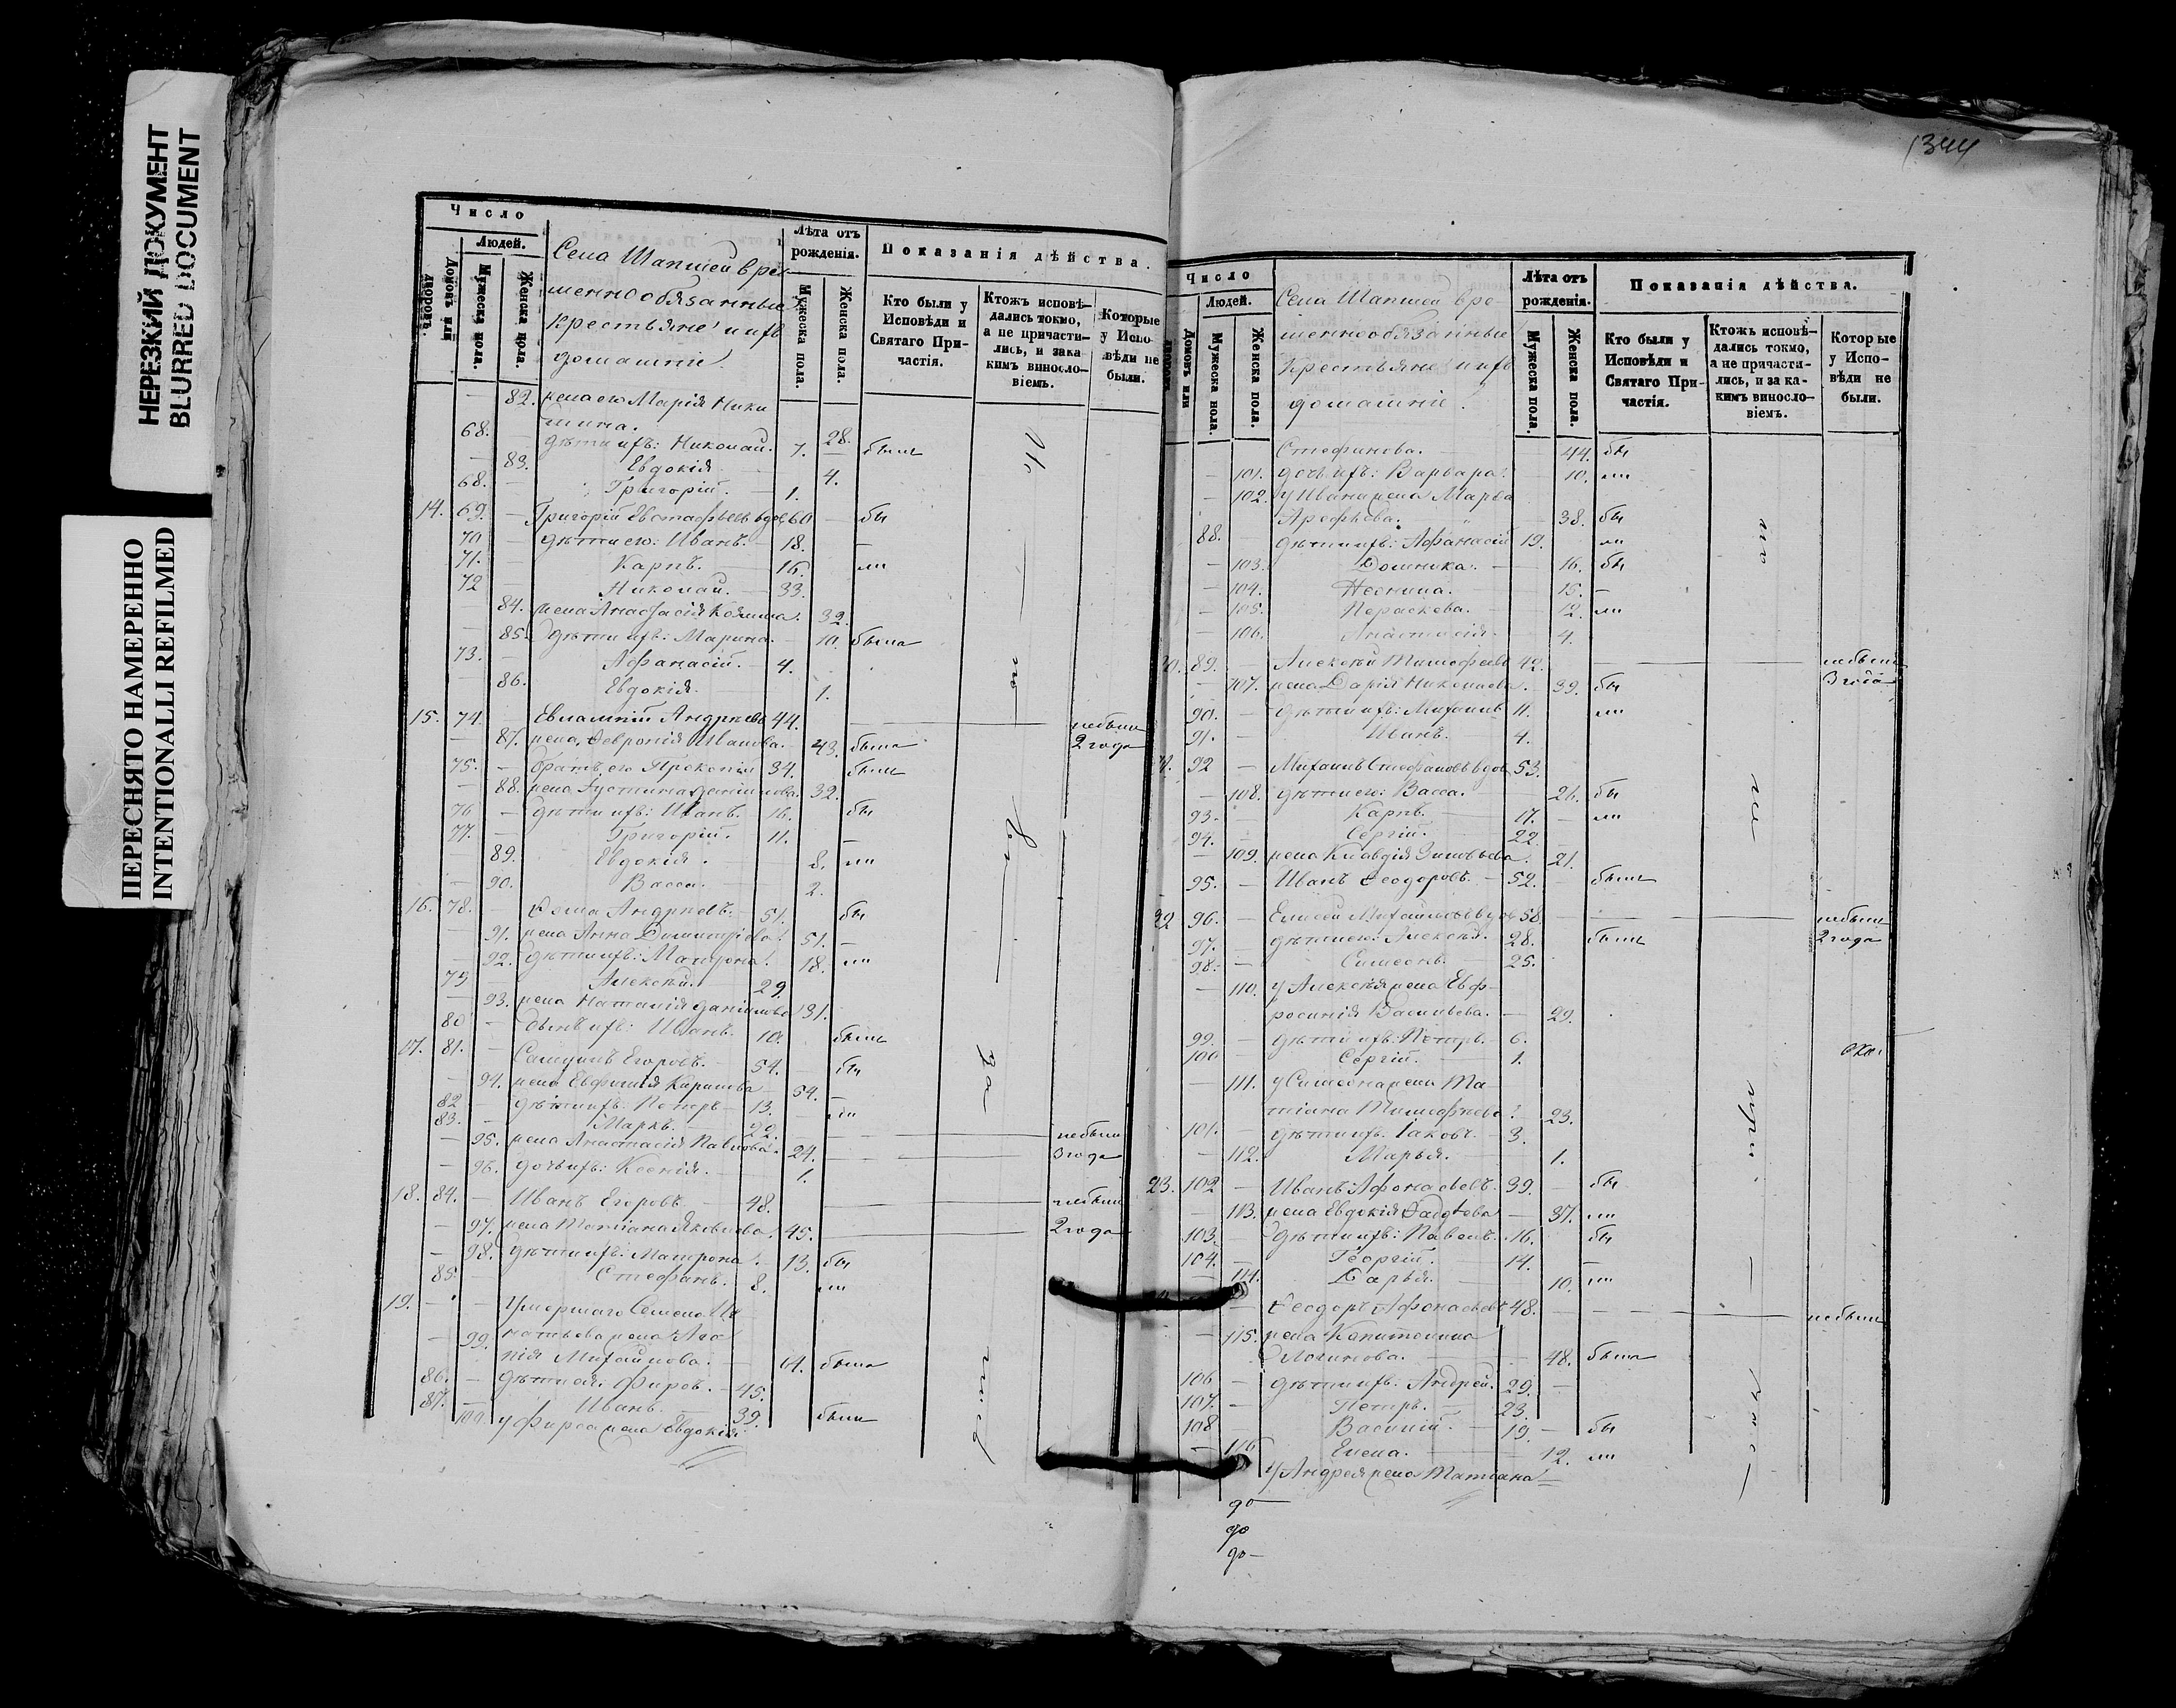 НЕРЕЗКИЙ ДОКУМЕНТ
BLURRED DOCUMENT
ПЕРЕСНЯТО НАМЕРЕННО
INTENTIONALLI REFILMED
Число
Людей.
Домовъ или дворовъ.
Мужеска пола.
Женска пола.
Села Шапшей вре
меннообязанные
крестьяне и ихъ
домашніе.
Лѣта отъ рожденія.
Мужеска пола.
Женска пола.
Показанія дѣйства.
Кто были у Исповѣди и Святаго Причастія.
Ктожъ исповѣдались токмо, а не причастились, и зака кимъ винословіемъ.
Которые у Исповѣди не были.
82. жена его Марія Ники
тина. 28.
68. дѣти ихъ: Николай. 7. были
83. Евдокія 4.
68. Григорій. 1.
14. 69. Григорій Евстафьевъ вдов 60 бы
70 дѣти его: Иванъ. 18. —
71. Карпъ. 16. ли
72 Николай. 33.
84. жена 32.
85. дѣти ихъ: Марина. 10. была
73. Афанасій. 4.
86. Евдокія. 1.
15. 74. Евлампій Андреевъ 44. небыли
87. жена, Февронія Иванова. 43. была 2 года
75. братъ его Прокопій 34. были
88. жена Густина Данилова. 32.
76 дѣти ихъ: Иванъ. 16. бы
77. Григорій. 11. —
89. Евдокія. 8. ли
90. Васса. 2.
16. 78. Фома Андреевъ. 51. бы
91. жена Анна Димитріева. 51. —
92. дѣти ихъ: Матрона. 18. ли
79 Алексѣй. 29.
93. жена Наталія Данилова 31.
80 сынъ ихъ: Иванъ. 10. были
17. 81. Самуилъ Егоровъ. 54. бы
94. жена Евфимія Карпова 54. —
82 дѣти ихъ: Петръ 13. ли
83. Маркъ. 22.
95. жена Анастасія Павлова. 24. небыли
96. дочь ихъ: Ксенія. 1. 3 года
18. 84. Иванъ Егоровъ 48. небыли
97. жена Татіана Яковлева. 45. 2 года
98. дѣти ихъ: Матрона. 13. бы
85 Стефанъ. 8. ли
19. Умершаго Семена Иг
99. натьева жена Ага
пія Михайлова. 64. была
86. дѣти ея: Фирсъ. 45.
87. Иванъ. 39. были
100. у Фирса жена Евдокія
1344
Число
Людей.
Домовъ или
Мужеска пола.
Женска пола.
Села Шапшей вре
меннообязанные
крестьяне и ихъ
домашніе.
Лѣта отъ рожденія.
Мужеска пола.
Женска пола.
Показанія дѣйства.
Кто были у Исповѣди и Святаго Причастія.
Ктожъ исповѣдались токмо, а не причастились, и за какимъ винословіемъ.
Которые у Исповѣди не были.
Стефанова. 44. бы
101. дочь ихъ: Варвара. 10. ли
102. у Ивана жена Марѳа
Арефьева. 38. бы
88. дѣти ихъ: Афанасій 19. ли
103. Домника. 16. бы
104. Неонила. 15. —
105. Параскева. 12. ли
106. Анастасія. 4.
89. Алексѣй Тимофеевъ 42. небыли
107. жена Дарія Николаева. 39. бы 3 года
90. дѣти ихъ: Михаилъ 11. ли
91. Иванъ. 4.
92 Михаилъ Стефановъ вдов 53.
108. дѣти его: Васса. 26. бы
93. Карпъ. 17. ли
94. Сергій. 22
109. жена Клавдія Зиновьева. 21.
95. Иванъ Феодоровъ. 52. были
22 96. Елисей Михайловъ вдов 58. небыли
97. дѣти его: Алексѣй. 28. были 2 года
98. Симеонъ. 25.
110. у Алексѣя жена Евф
росинія Васильева. 29.
99. дѣти ихъ: Петръ. 6.
100 Сергій. 1.
111. у Симеона жена Та
тіана Тимофеева 23.
101. дѣти ихъ: Іаковъ. 3.
112. Марья. 1.
23. 102 Иванъ Афонасьевъ. 39. бы
113. жена Евдокія 37. ли
103. дѣти ихъ: Павелъ. 16. бы
104. Георгій. 14. —
114. Дарья. 10. ли
Феодоръ Афонасьевъ 48. небыли
115. жена Капитолина
Логинова. 48. была
106 дѣти ихъ: Андрей. 29.
107. Петръ. 23.
108 Василій. 19. бы
116 Елена. 12. ли
у Андрея жена Татіана
до
до
до